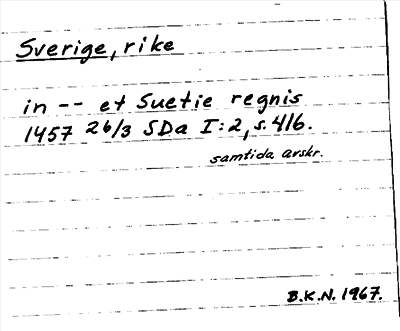 Sverige, rike
in -- et Suetie regnis
1457 26/3 SDa I:2, s. 416.
samtida avskr.
B.K.N. 1967.